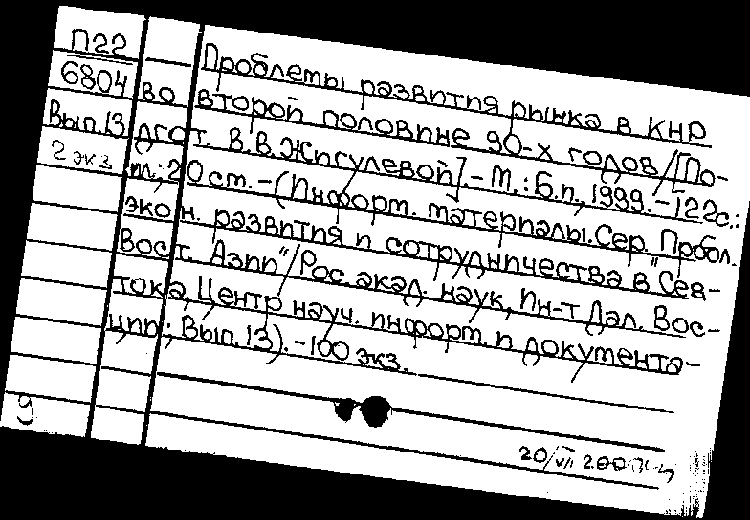 П22
6804
Вып.13
2 экз.
Проблемы развития рынка в КНР
во второй половине 90-х годов/[По-
дгот. В.В.Жигулевой].-М.:Б.и.,1999.-122с.:
ил.;20см.-(Информ. материалы.Сер."Пробл.
экон. развития и сотрудничества в Сев-
Вост. Азии"/Рос.акад. наук, Ин-т Дал. Вос-
тока, Центр науч. информ. и документа-
ции; Вып.13).-100 экз.
9
20/VII